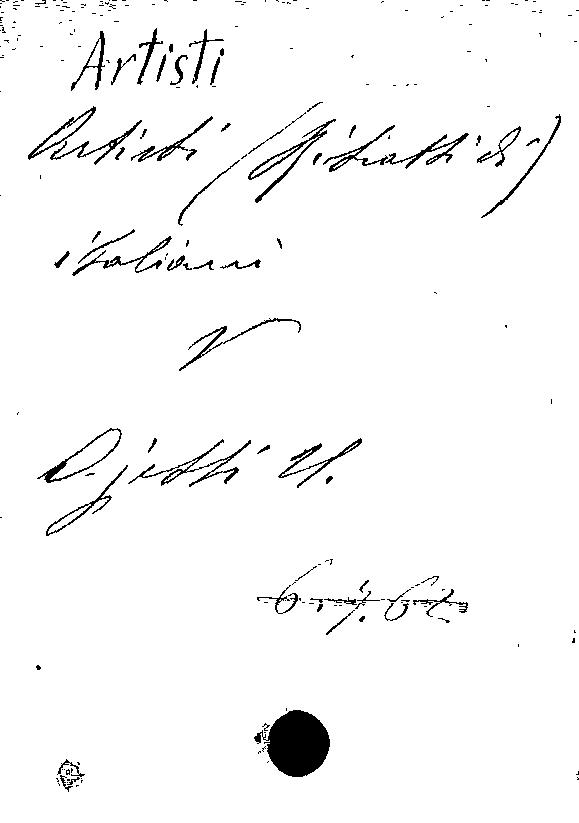 Artisti
Artisti (Ritratti di)
italiani
V
Ojetti U.
6.7.62